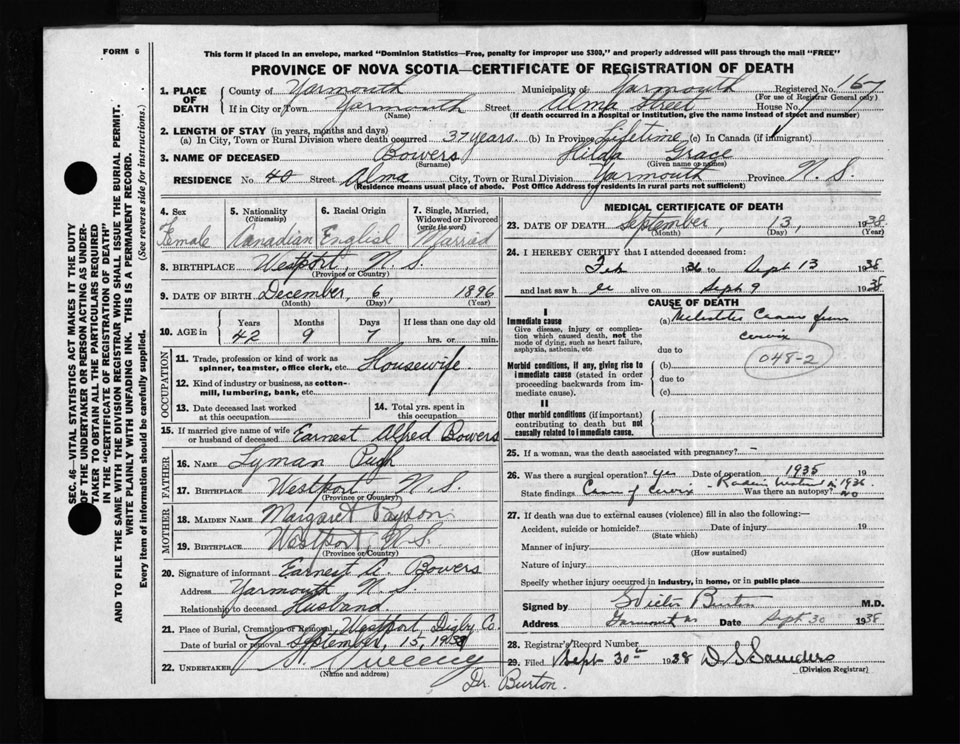 FORM 6
This form if placed in an envelope, marked "Dominion Statistics—Free, penalty for improper use $300," and properly addressed will pass through the mail "FREE"
PROVINCE OF NOVA SCOTIA—CERTIFICATE OF REGISTRATION OF DEATH
SEC. 46—VITAL STATISTICS ACT MAKES IT THE DUTY
OF THE UNDERTAKER OR PERSON ACTING AS UNDER-
TAKER TO OBTAIN ALL THE PARTICULARS REQUIRED
IN THE "CERTIFICATE OF REGISTRATION OF DEATH"
AND TO FILE THE SAME WITH THE DIVISION REGISTRAR WHO SHALL ISSUE THE BURIAL PERMIT.
WRITE PLAINLY WITH UNFADING INK. THIS IS A PERMANENT RECORD.
Every item of information should be carefully supplied. (See reverse side for instructions.)
1. PLACE OF DEATH County of Yarmouth Municipality of Yarmouth Registered No. 167
(For use of Registrar General only)
If in City or Town Yarmouth Street Alma Street House No.
(Name) (If death occurred in a hospital or institution, give the name instead of street and number)
2. LENGTH OF STAY (in years, months and days)
(a) In City, Town or Rural Division where death occurred 37 years. (b) In Province Lifetime (c) In Canada (if immigrant)
3. NAME OF DECEASED Bowers Hilda Grace
(Surname) (Given name or names)
RESIDENCE No. 40 Street Alma City, Town or Rural Division Yarmouth Province N.S.
(Residence means usual place of abode. Post Office Address for residents in rural parts not sufficient)
4. Sex 5. Nationality (Citizenship) 6. Racial Origin 7. Single, Married, Widowed or Divorced (write the word)
Female Canadian English Married
8. BIRTHPLACE Westport, N.S.
(Province or Country)
9. DATE OF BIRTH December, 6, 1896
(Month) (Day) (Year)
10. AGE in Years Months Days If less than one day
42 9 7 hrs. or min.
OCCUPATION
11. Trade, profession or kind of work as spinner, teamster, office clerk, etc. Housewife.
12. Kind of industry or business, as cotton-mill, lumbering, bank, etc.
13. Date deceased last worked at this occupation
14. Total yrs. spent in this occupation
15. If married give name of wife or husband of deceased Earnest Alfred Bowers
FATHER
16. NAME Lyman Pugh
17. BIRTHPLACE Westport, N.S.
(Province or Country)
MOTHER
18. MAIDEN NAME Margaret Payson
19. BIRTHPLACE Westport, N.S.
(Province or Country)
20. Signature of informant Earnest A. Bowers
Address Yarmouth N.S.
Relationship to deceased Husband
21. Place of Burial, Cremation or Removal Westport, Digby Co.
Date of burial or removal September, 15, 1938
22. UNDERTAKER
(Name and address)
Dr. Burton.
MEDICAL CERTIFICATE OF DEATH
23. DATE OF DEATH September, 13, 1938
(Month) (Day) (Year)
24. I HEREBY CERTIFY that I attended deceased from:
Feb 1936 to Sept 13 1938
and last saw her alive on Sept 9 1938
CAUSE OF DEATH
I
Immediate cause
Give disease, injury or complication which caused death, not the mode of dying, such as heart failure, asphyxia, asthenia, etc
(a) cervix
due to
Morbid conditions, if any, giving rise to immediate cause (stated in order proceeding backwards from immediate cause).
(b)
048-2
due to
(c)
II
Other morbid conditions (if important) contributing to death but not causally related to immediate cause.
25. If a woman, was the death associated with pregnancy? -
26. Was there a surgical operation? yes Date of operation 1935
State findings Cervix 1936 Was there an autopsy? no
27. If death was due to external causes (violence) fill in also the following:—
Accident, suicide or homicide? Date of injury 19
(State which)
Manner of injury
(How sustained)
Nature of injury
Specify whether injury occurred in industry, in home, or in public place
Signed by Burton M.D.
Address Yarmouth NS Date Sept 30 1938
28. Registrar's Record Number
29. Filed Sept 30th 1938 D. S. Saunders
(Division Registrar)